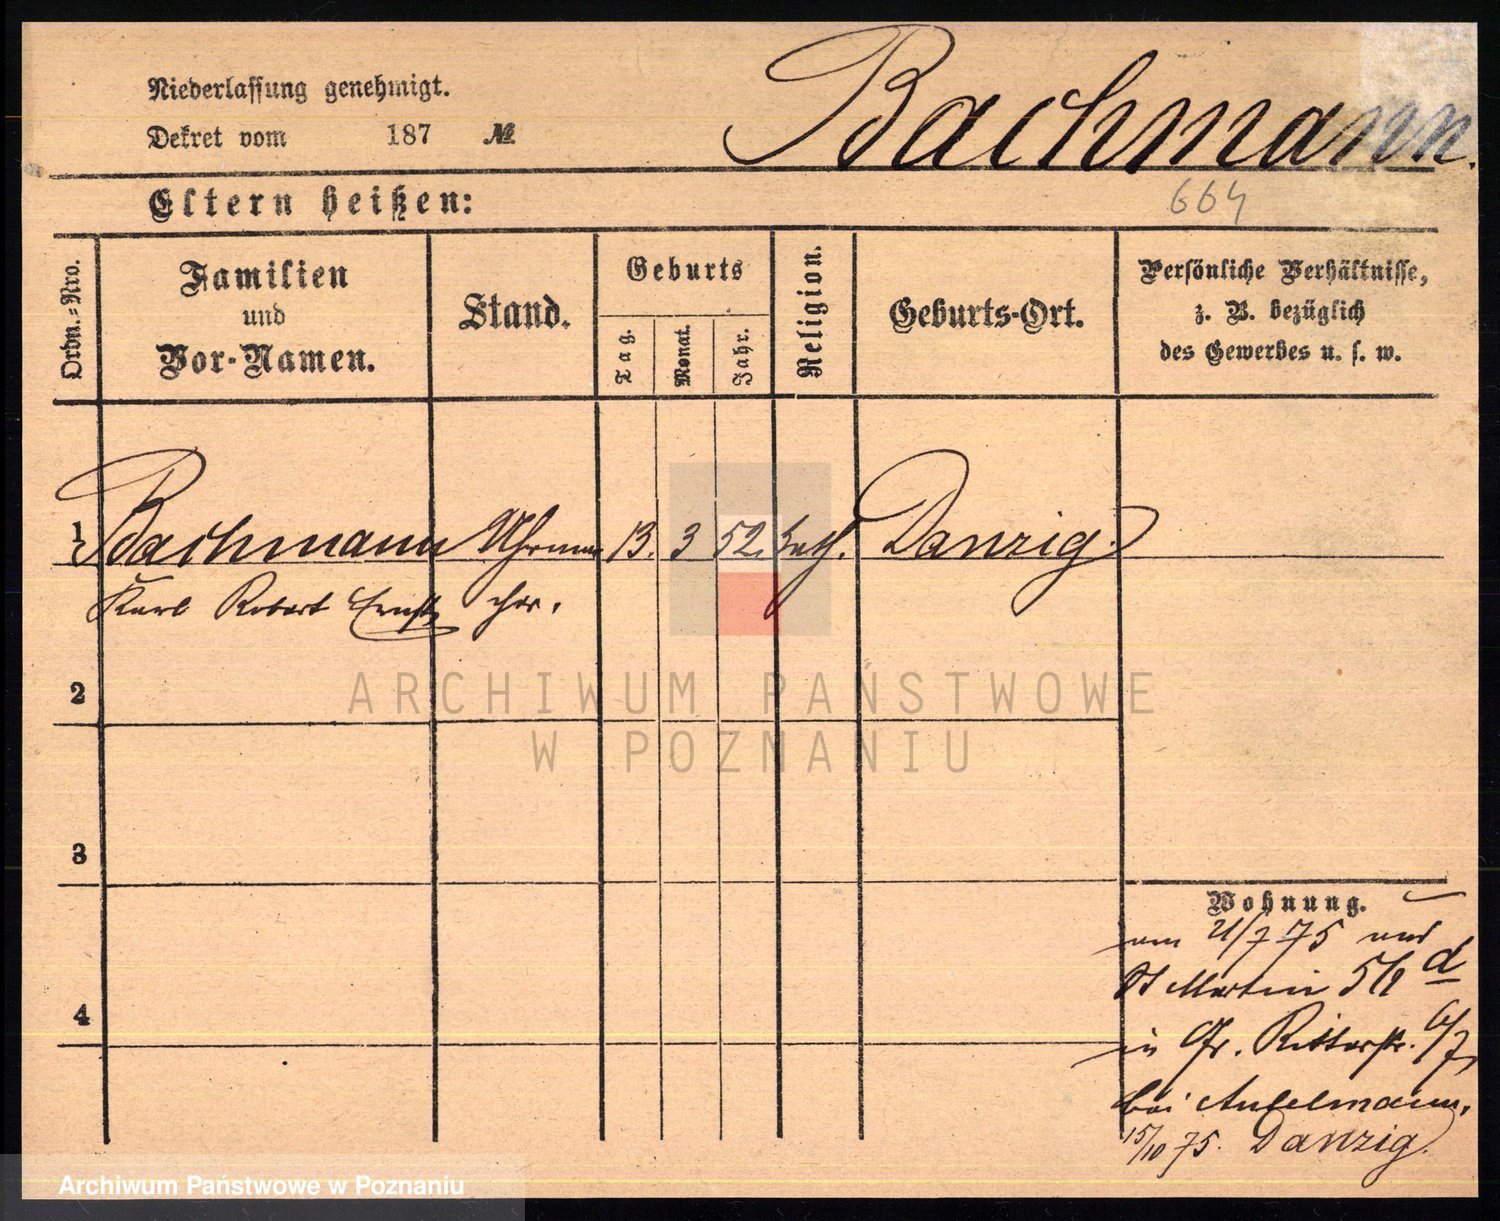 Bachmann.
Niederlassung genehmigt.
Dekret vom 187 №
Eltern heißen:
664
Ordn.-Nro.
Familien und Vor-Namen.
Stand.
Geburts
Tag.
Monat.
Jahr.
Religion.
Geburts-Ort.
Persönliche Verhältnisse,
z. B. bezüglich
des Gewerbes u. s. w.
1 Bachmann Uhrma 13. 3 52. kath. Danzig.
Karl Robert Ernst cher.
2
3
4
Wohnung.
am 21/7 75 aus
St Martin 5/9 d
in Gr. Ritterstr. 6/7,
bei
15/10 75. Danzig.
ARCHIWUM PAŃSTWOWE
W POZNANIU
Archiwum Państwowe w Poznaniu